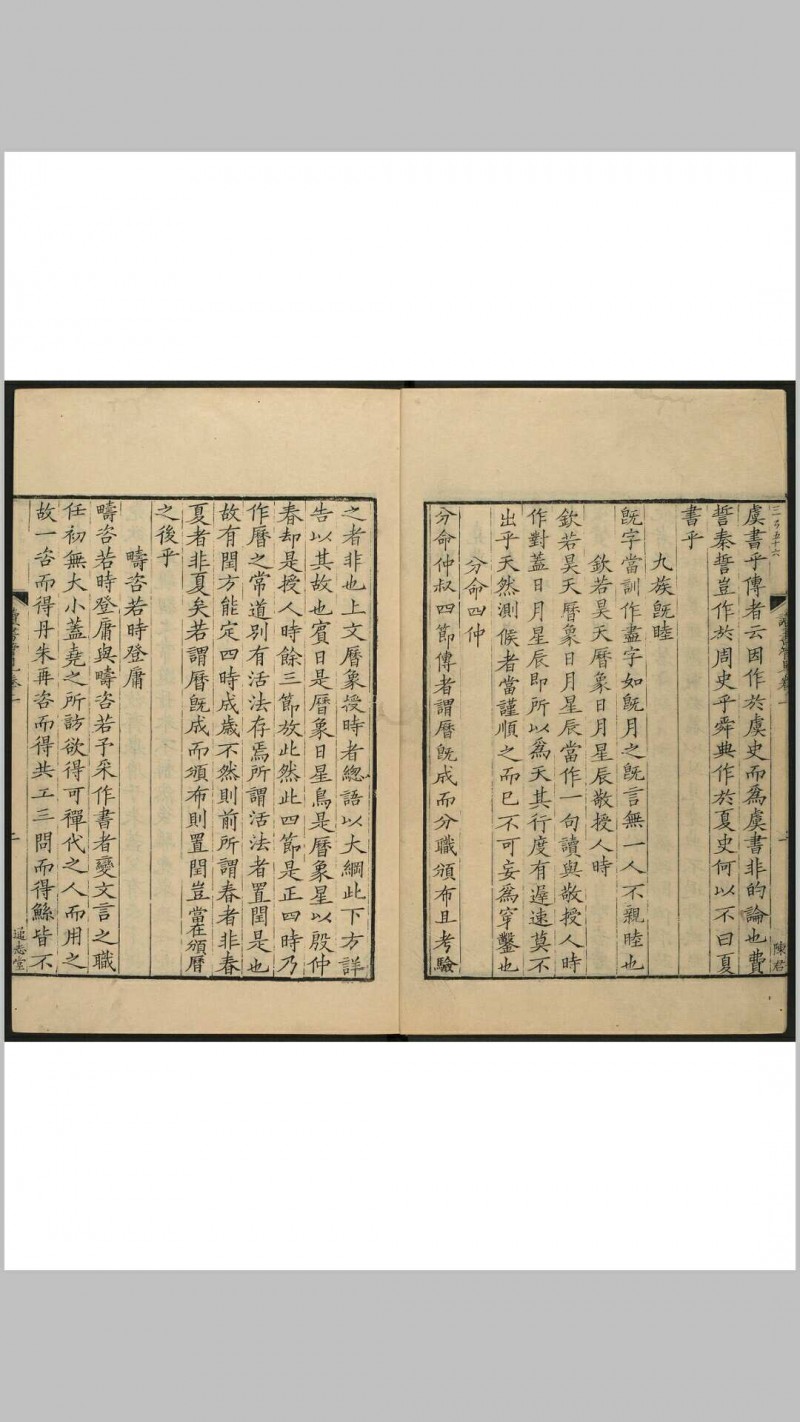 三百五十六
陳君
虞書乎傳者云因作於虞史而爲虞書非的論也費
誓秦誓豈作於周史乎舜典作於夏史何以不曰夏
書乎
九族旣睦
旣字當訓作盡字如旣月之旣言無一人不親睦也
欽若昊天曆象日月星辰敬授人時
欽若昊天曆象日月星辰當作一句讀與敬授人時
作對蓋日月星辰即所以爲天其行度有遲速莫不
出乎天然測候者當謹順之而已不可妄爲穿鑿也
分命四仲
分命仲叔四節傳者謂曆旣成而分職頒布且考驗
之者非也上文曆象授時者總語以大綱此下方詳
告以其故也賓日是曆象日星鳥是曆象星以殷仲
春却是授人時餘三節放此然此四節是正四時乃
作曆之常道別有活法存焉所謂活法者置閏是也
故有閏方能定四時成歲不然則前所謂春者非春
夏者非夏矣若謂曆旣成而頒布則置閏豈當在頒曆
之後乎
疇咨若時登庸
疇咨若時登庸與疇咨若予采作書者變文言之職
任初無大小蓋堯之所訪欲得可禪代之人而用之
故一咨而得丹朱再咨而得共工三問而得鯀皆不
通志堂